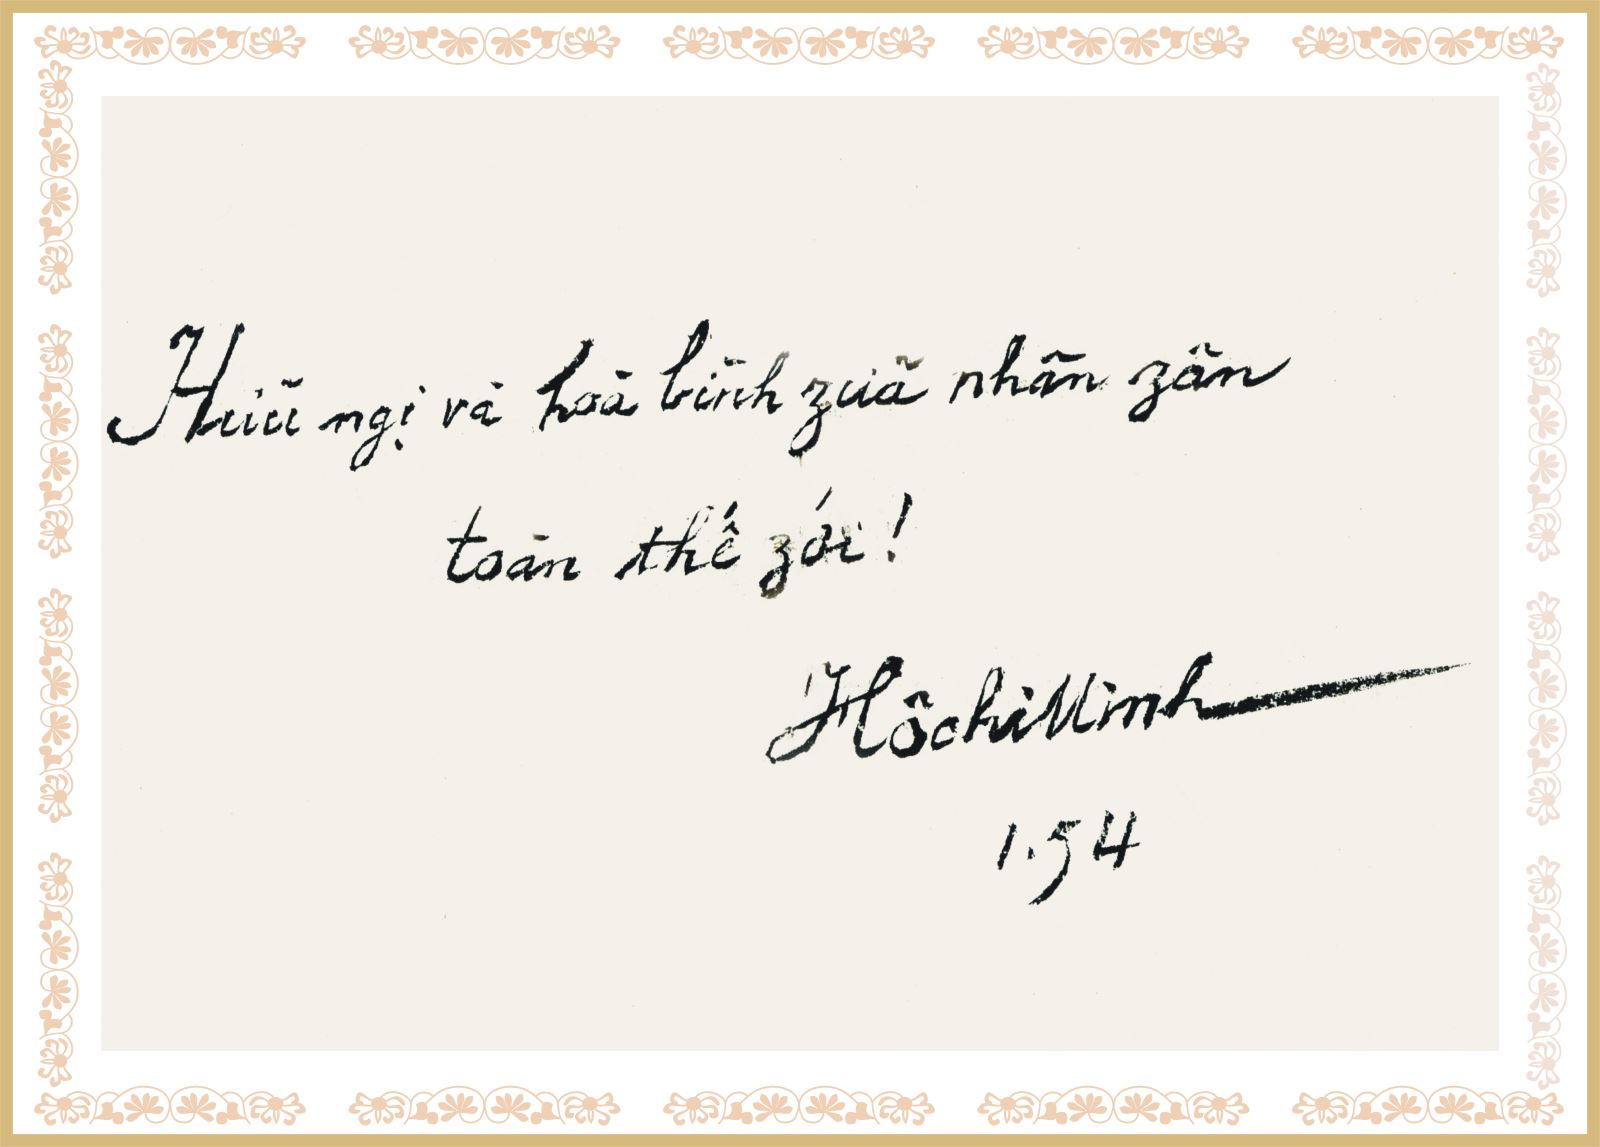 Hữu ngị và hoà bình zữa nhân zân
toàn thế zới!
Hồ chí Minh
1.54